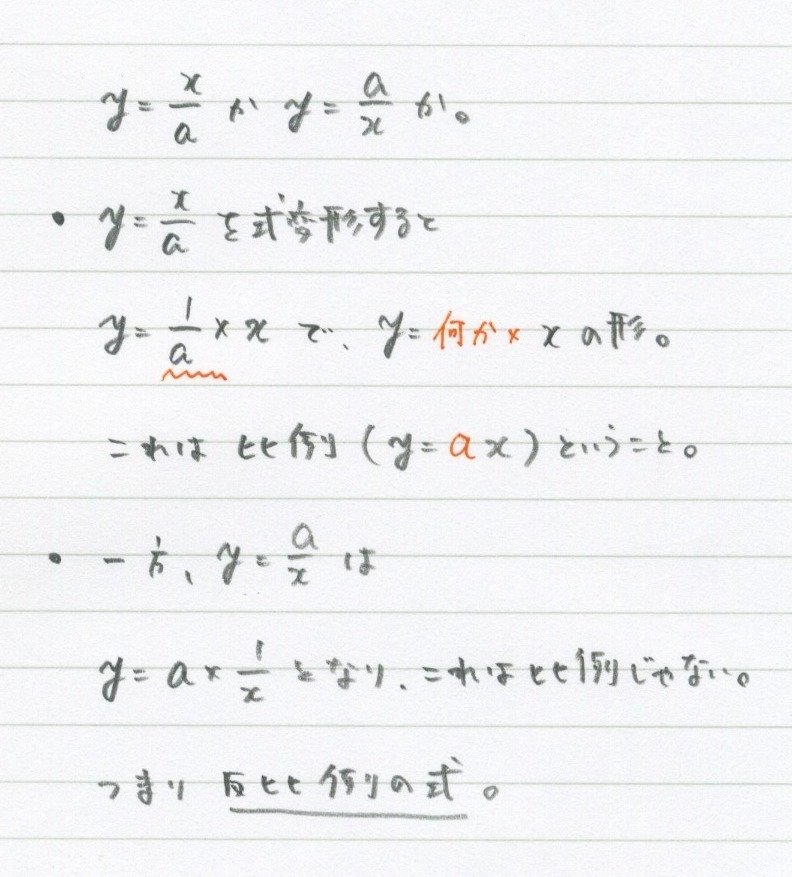 y = x/a か y = a/x か。
• y = x/a を式変形すると
y = 1/a × x で、y = 何か × x の形。
これは 比例 (y = a x) ということ。
• 一方、y = a/x は
y = a × 1/x となり、これは比例じゃない。
つまり 反比例の式。